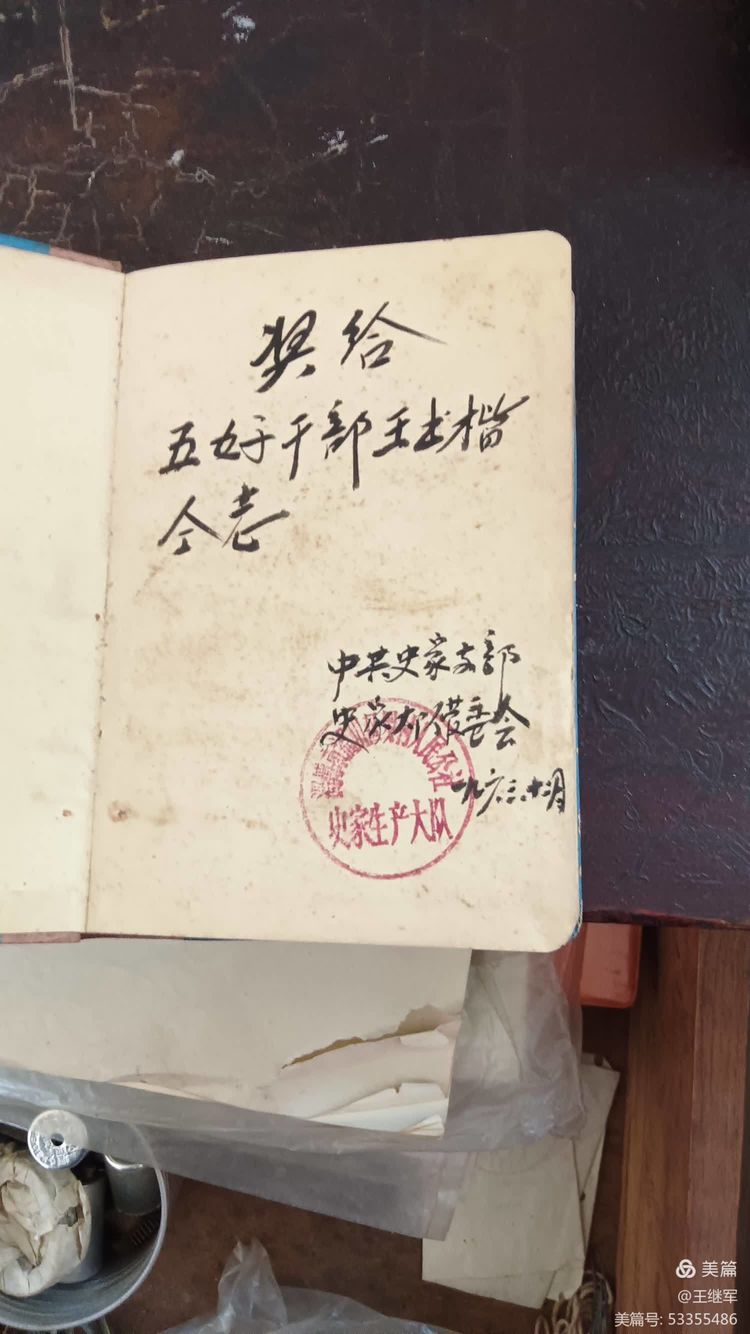 奖给
五好干部王书楷
仝志
中共史家支部
史家大队管委会
一九六三.十二月
人民公社
史家生产大队
美篇
@王继军
美篇号: 53355486